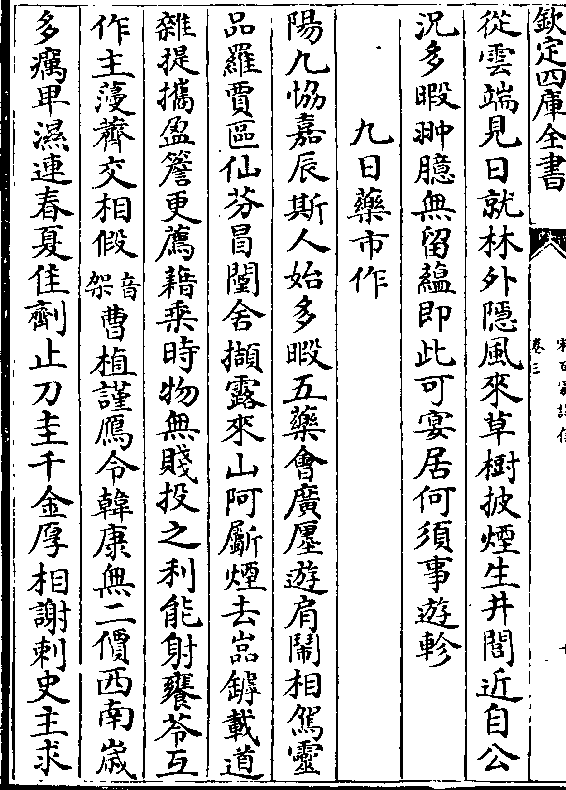 欽定四庫全書
卷三
從雲端見日就林外隱風來草樹披煙生井閭近自公
況多暇翀臆無留蘊即此可宴居何須事遊軫
九日藥市作
陽九協嘉辰斯人始多暇五藥會廣㕓遊肩鬧相駕靈
品羅賈區仙芬冒闉舍擷露來山阿斸煙去嵓罅載道
雜提攜盈簷更薦藉乗時物無賤投之利能射饔苓互
作主薓薺交相假音架曹植謹贋令韓康無二價西南嵗
多癘卑濕連春夏佳劑止刀圭千金厚相謝刺史主求